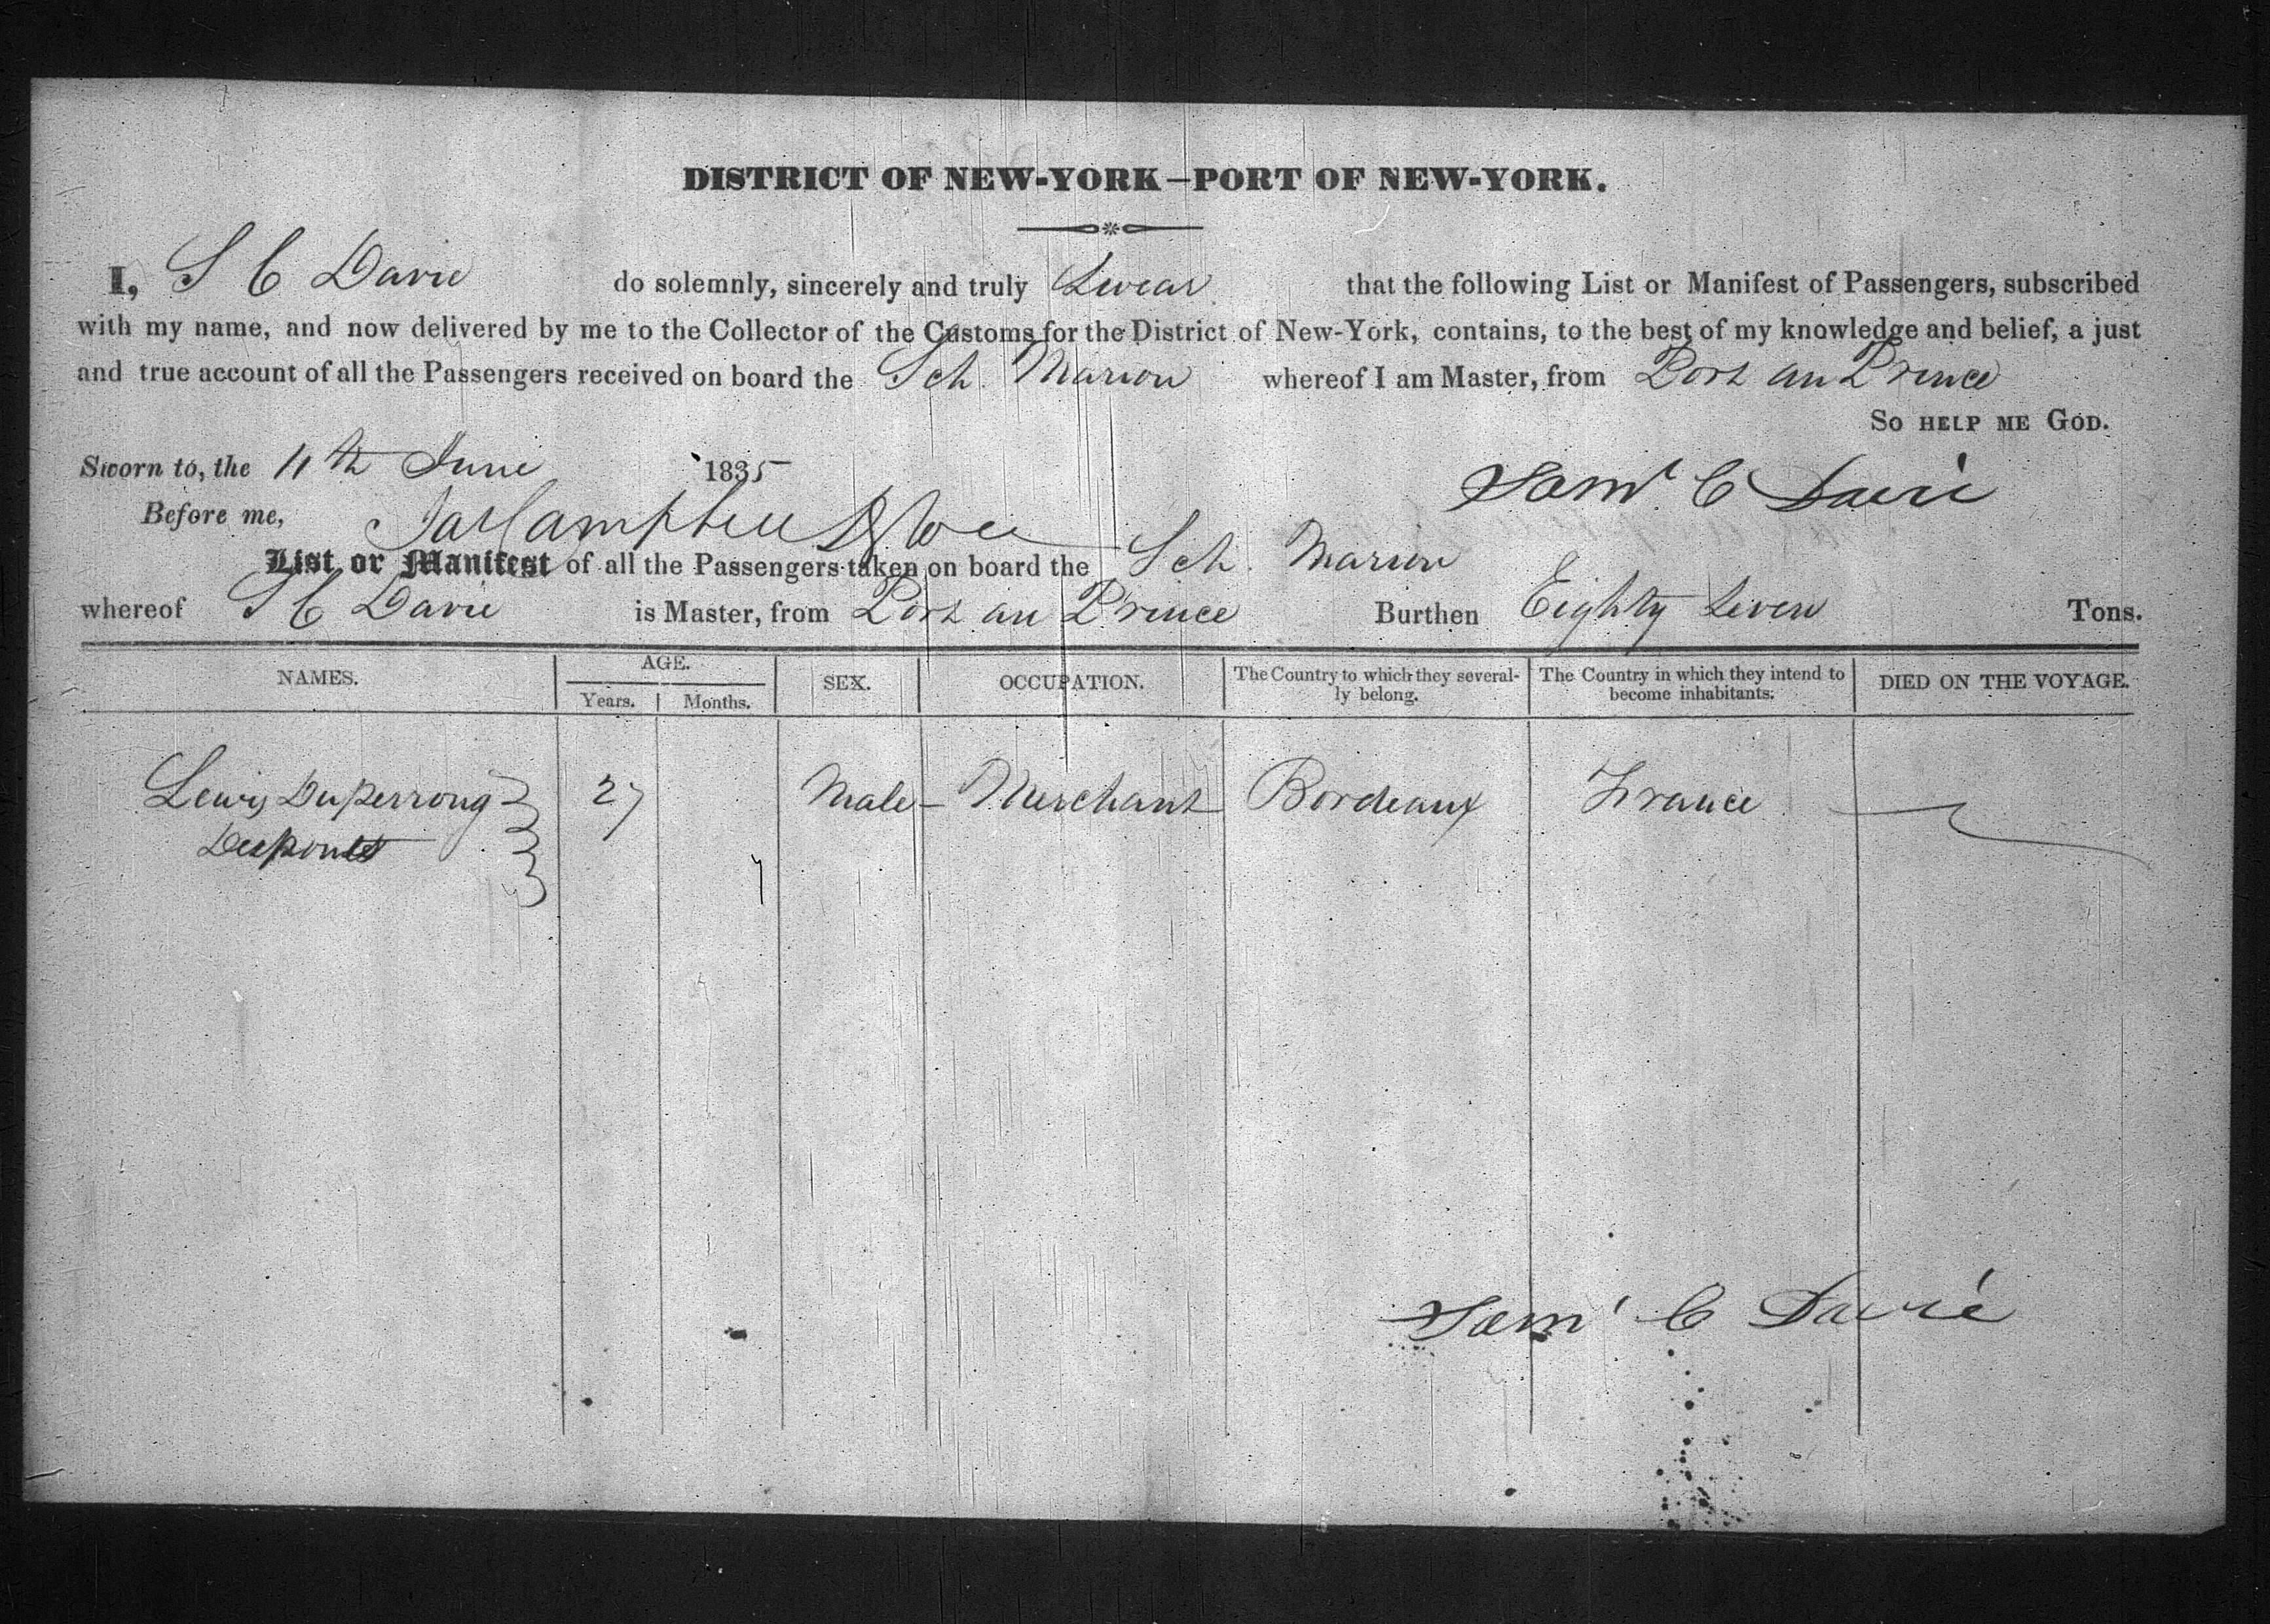 DISTRICT OF NEW-YORK—PORT OF NEW-YORK.
I, S C Davie do solemnly, sincerely and truly Swear that the following List or Manifest of Passengers, subscribed
with my name, and now delivered by me to the Collector of the Customs for the District of New-York, contains, to the best of my knowledge and belief, a just
and true account of all the Passengers received on board the Sch. Marion whereof I am Master, from Port au Prince
So help me God.
Sworn to, the 11th June 1835 Saml C Davie
Before me, Jas Campbell
List or Manifest of all the Passengers taken on board the Sch. Marion
whereof S C Davie is Master, from Port au Prince Burthen Eighty Seven Tons.
NAMES. AGE. Years. Months. SEX. OCCUPATION. The Country to which they several-ly belong. The Country in which they intend to become inhabitants. DIED ON THE VOYAGE.
Lewis Duperrong 27 Male - Merchant Bordeaux France
Saml C Davie